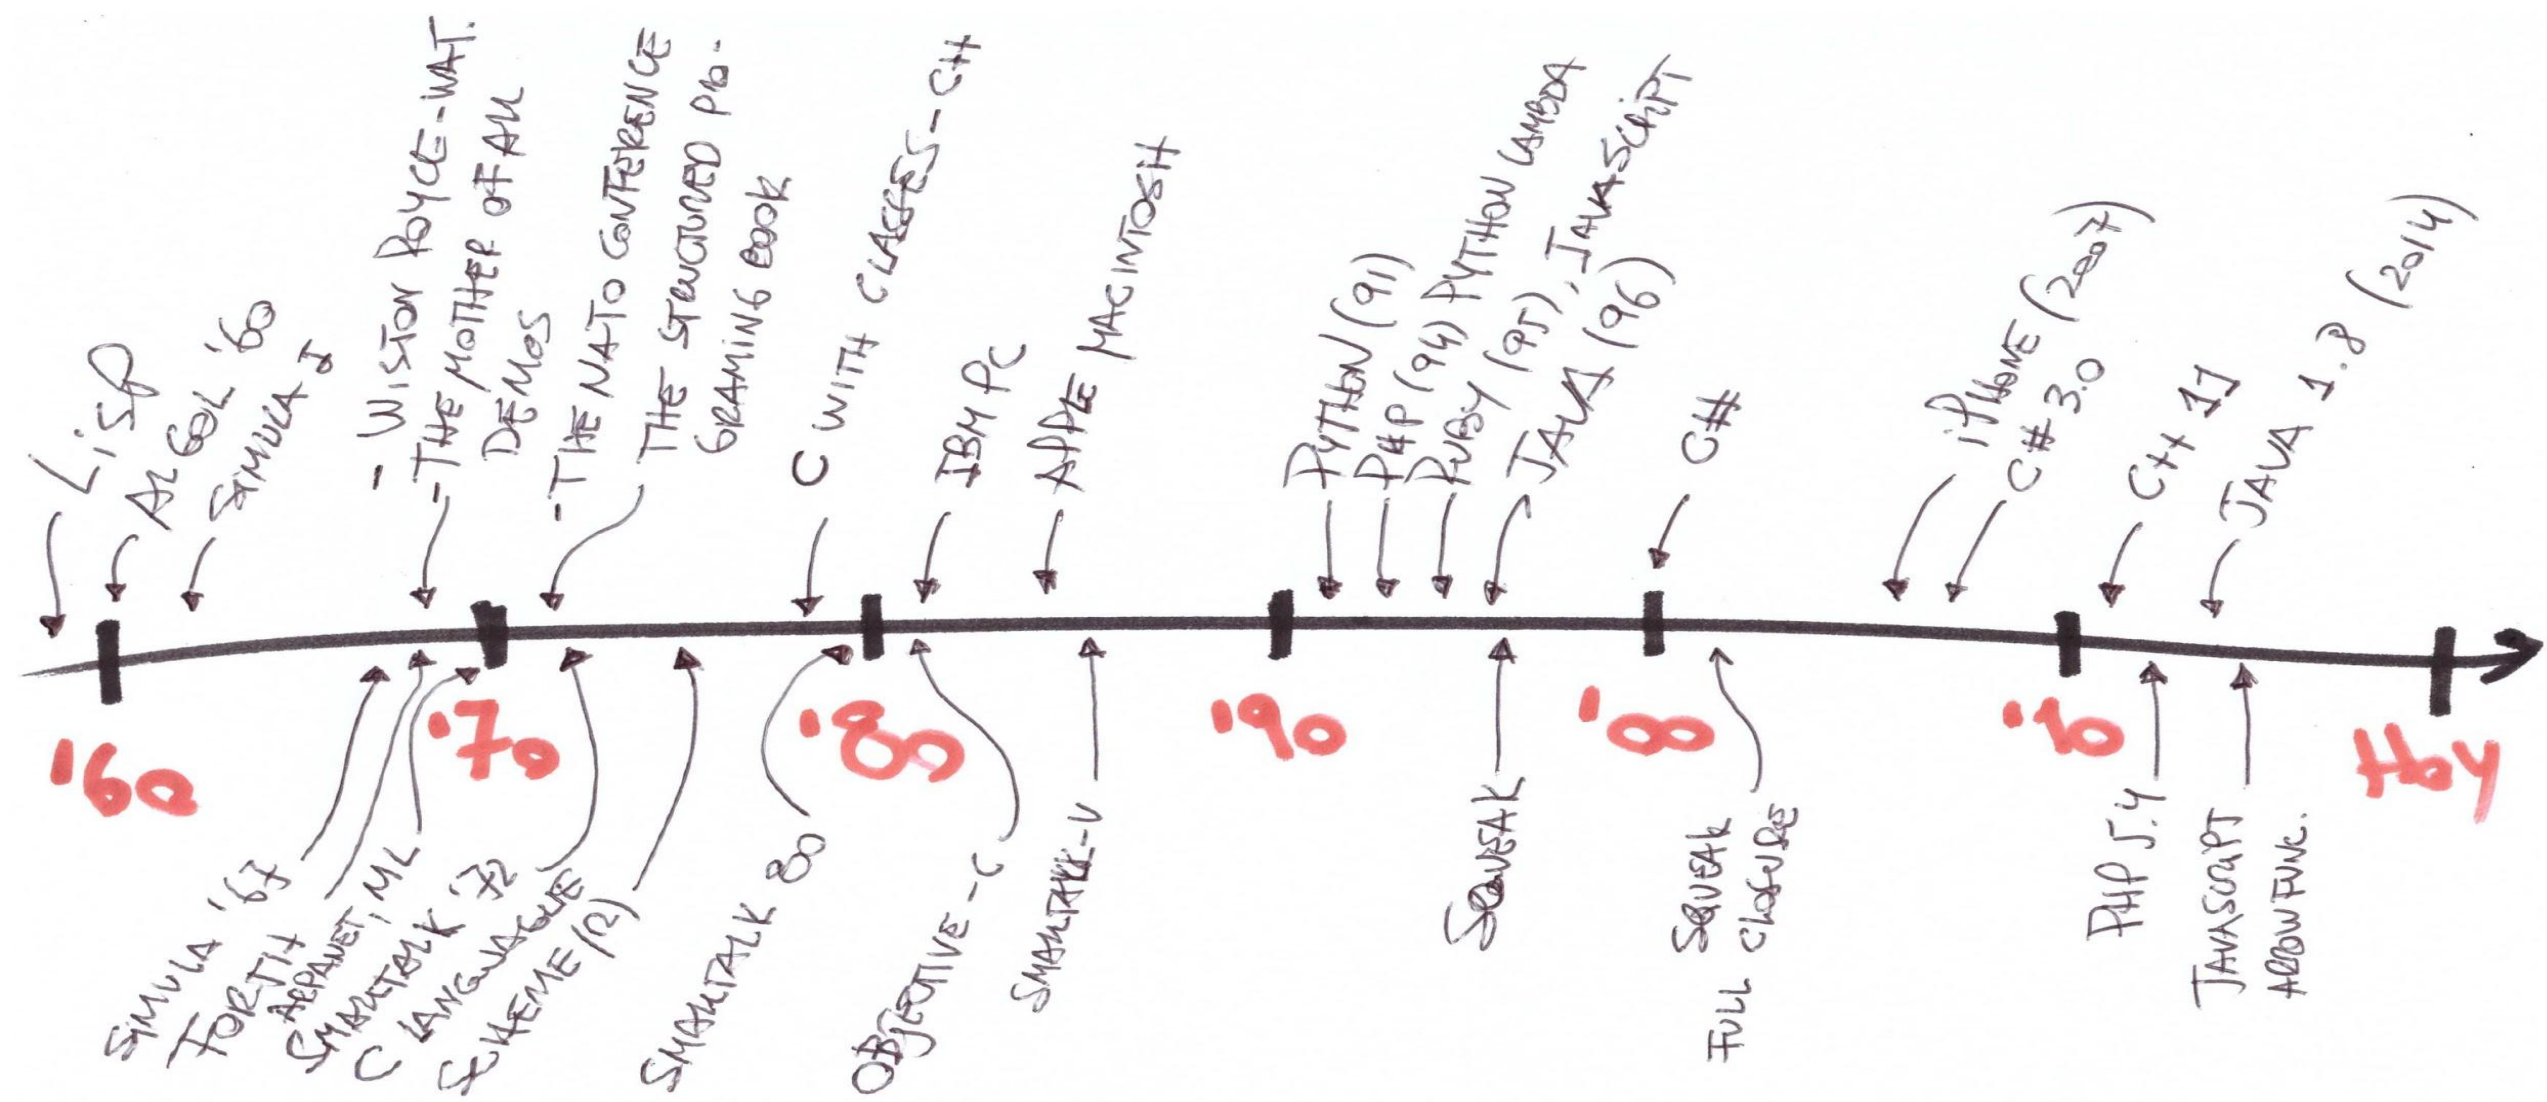 LISP
ALGOL '60
SIMULA I
- WISTON ROYCE-WAT.
-THE MOTHER OF ALL
DEMOS
-THE NATO CONFERENCE
THE STRUCTURED PRO-
GRAMING BOOK
C WITH CLASSES-C++
IBM PC
APPLE MACINTOSH
PYTHON (91)
PHP (94) PYTHON LAMBDA
RUBY (95), JAVASCRIPT
JAVA (96)
C#
iPHONE (2007)
C# 3.0
C++ 11
JAVA 1.8 (2014)
'60
'70
'80
'90
'00
'10
Hoy
SIMULA '67
FORTH
ARPANET, ML
SMALLTALK '72
C LANGUAGUE
SCHEME
SMALLTALK 80
OBJECTIVE-C
SMALLTALK-V
SQUEAK
SQUEAK
FULL CLOSURES
PHP 5.4
JAVASCRIPT
ARROW FUNC.